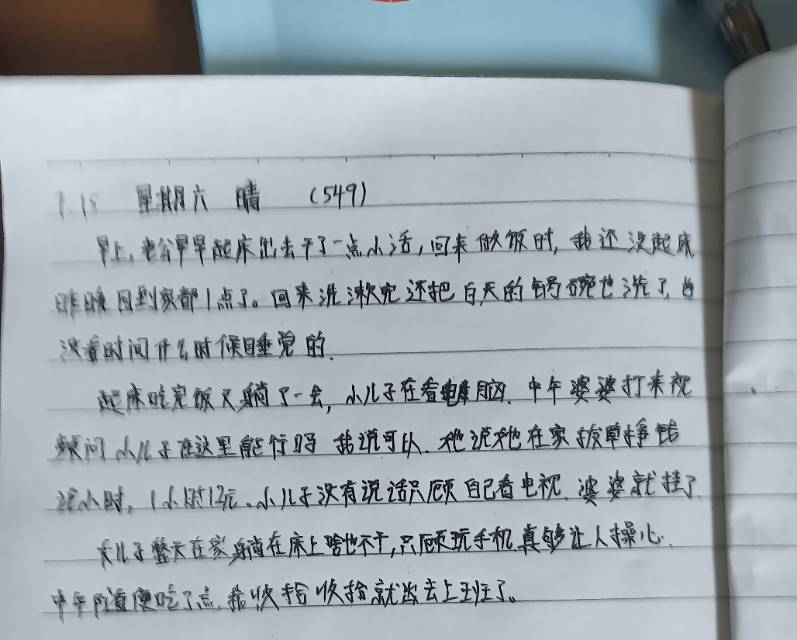 7.15 星期六 晴 (549)
早上,老公早早起床出去干了一点小活,回来做饭时,我还没起床
昨晚回到家都1点了。回来洗漱完还把白天的锅碗也洗了,也
没看时间什么时候睡觉的.
起床吃完饭又躺了一会,小儿子在看电脑.中午婆婆打来视
频问小儿子在这里能行吗 我说可以.她说她在家拔草挣钱
小时,1小时12元、小儿子没有说话只顾自己看电视.婆婆就挂了
大儿子整天在家躺在床上啥也不干,只顾玩手机.真够让人操心.
中午随便吃了点.收拾收拾就出去上班了。